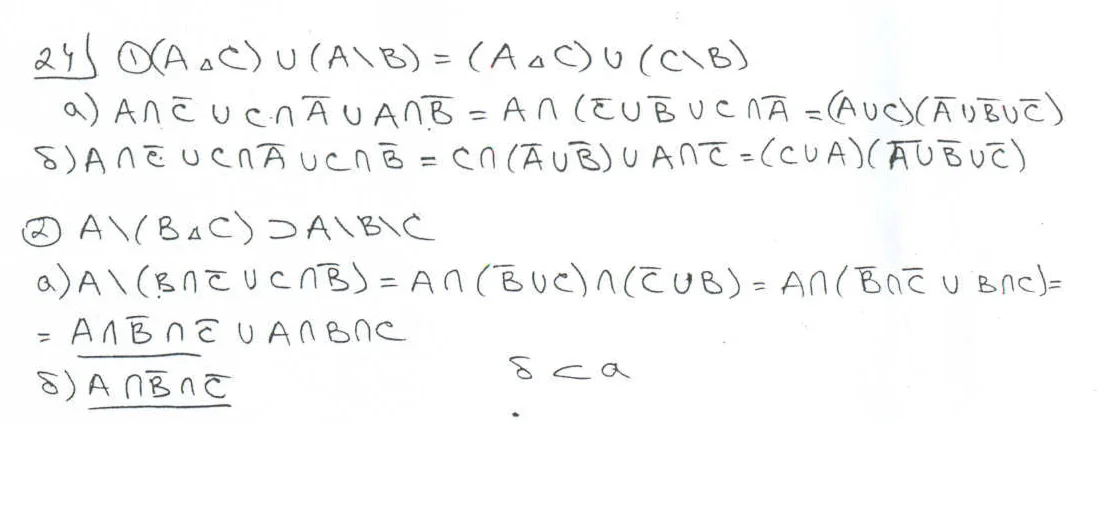 24) ①(A △ C) ∪ (A\B) = (A △ C) ∪ (C\B)
а) A∩C̅ ∪ C∩A̅ ∪ A∩B̅ = A∩(C̅∪B̅ ∪ C∩A̅ = (A∪C)(A̅∪B̅∪C̅)
б) A∩C̅ ∪ C∩A̅ ∪ C∩B̅ = C∩(A̅∪B̅) ∪ A∩C̅ = (C∪A)(A̅∪B̅∪C̅)
② A\(B△C) ⊃ A\B\C
а) A\(B∩C̅ ∪ C∩B̅) = A∩(B̅∪C)∩(C̅∪B) = A∩(B̅∩C̅ ∪ B∩C) =
= A∩B̅∩C̅ ∪ A∩B∩C
б) A∩B̅∩C̅
б ⊂ а